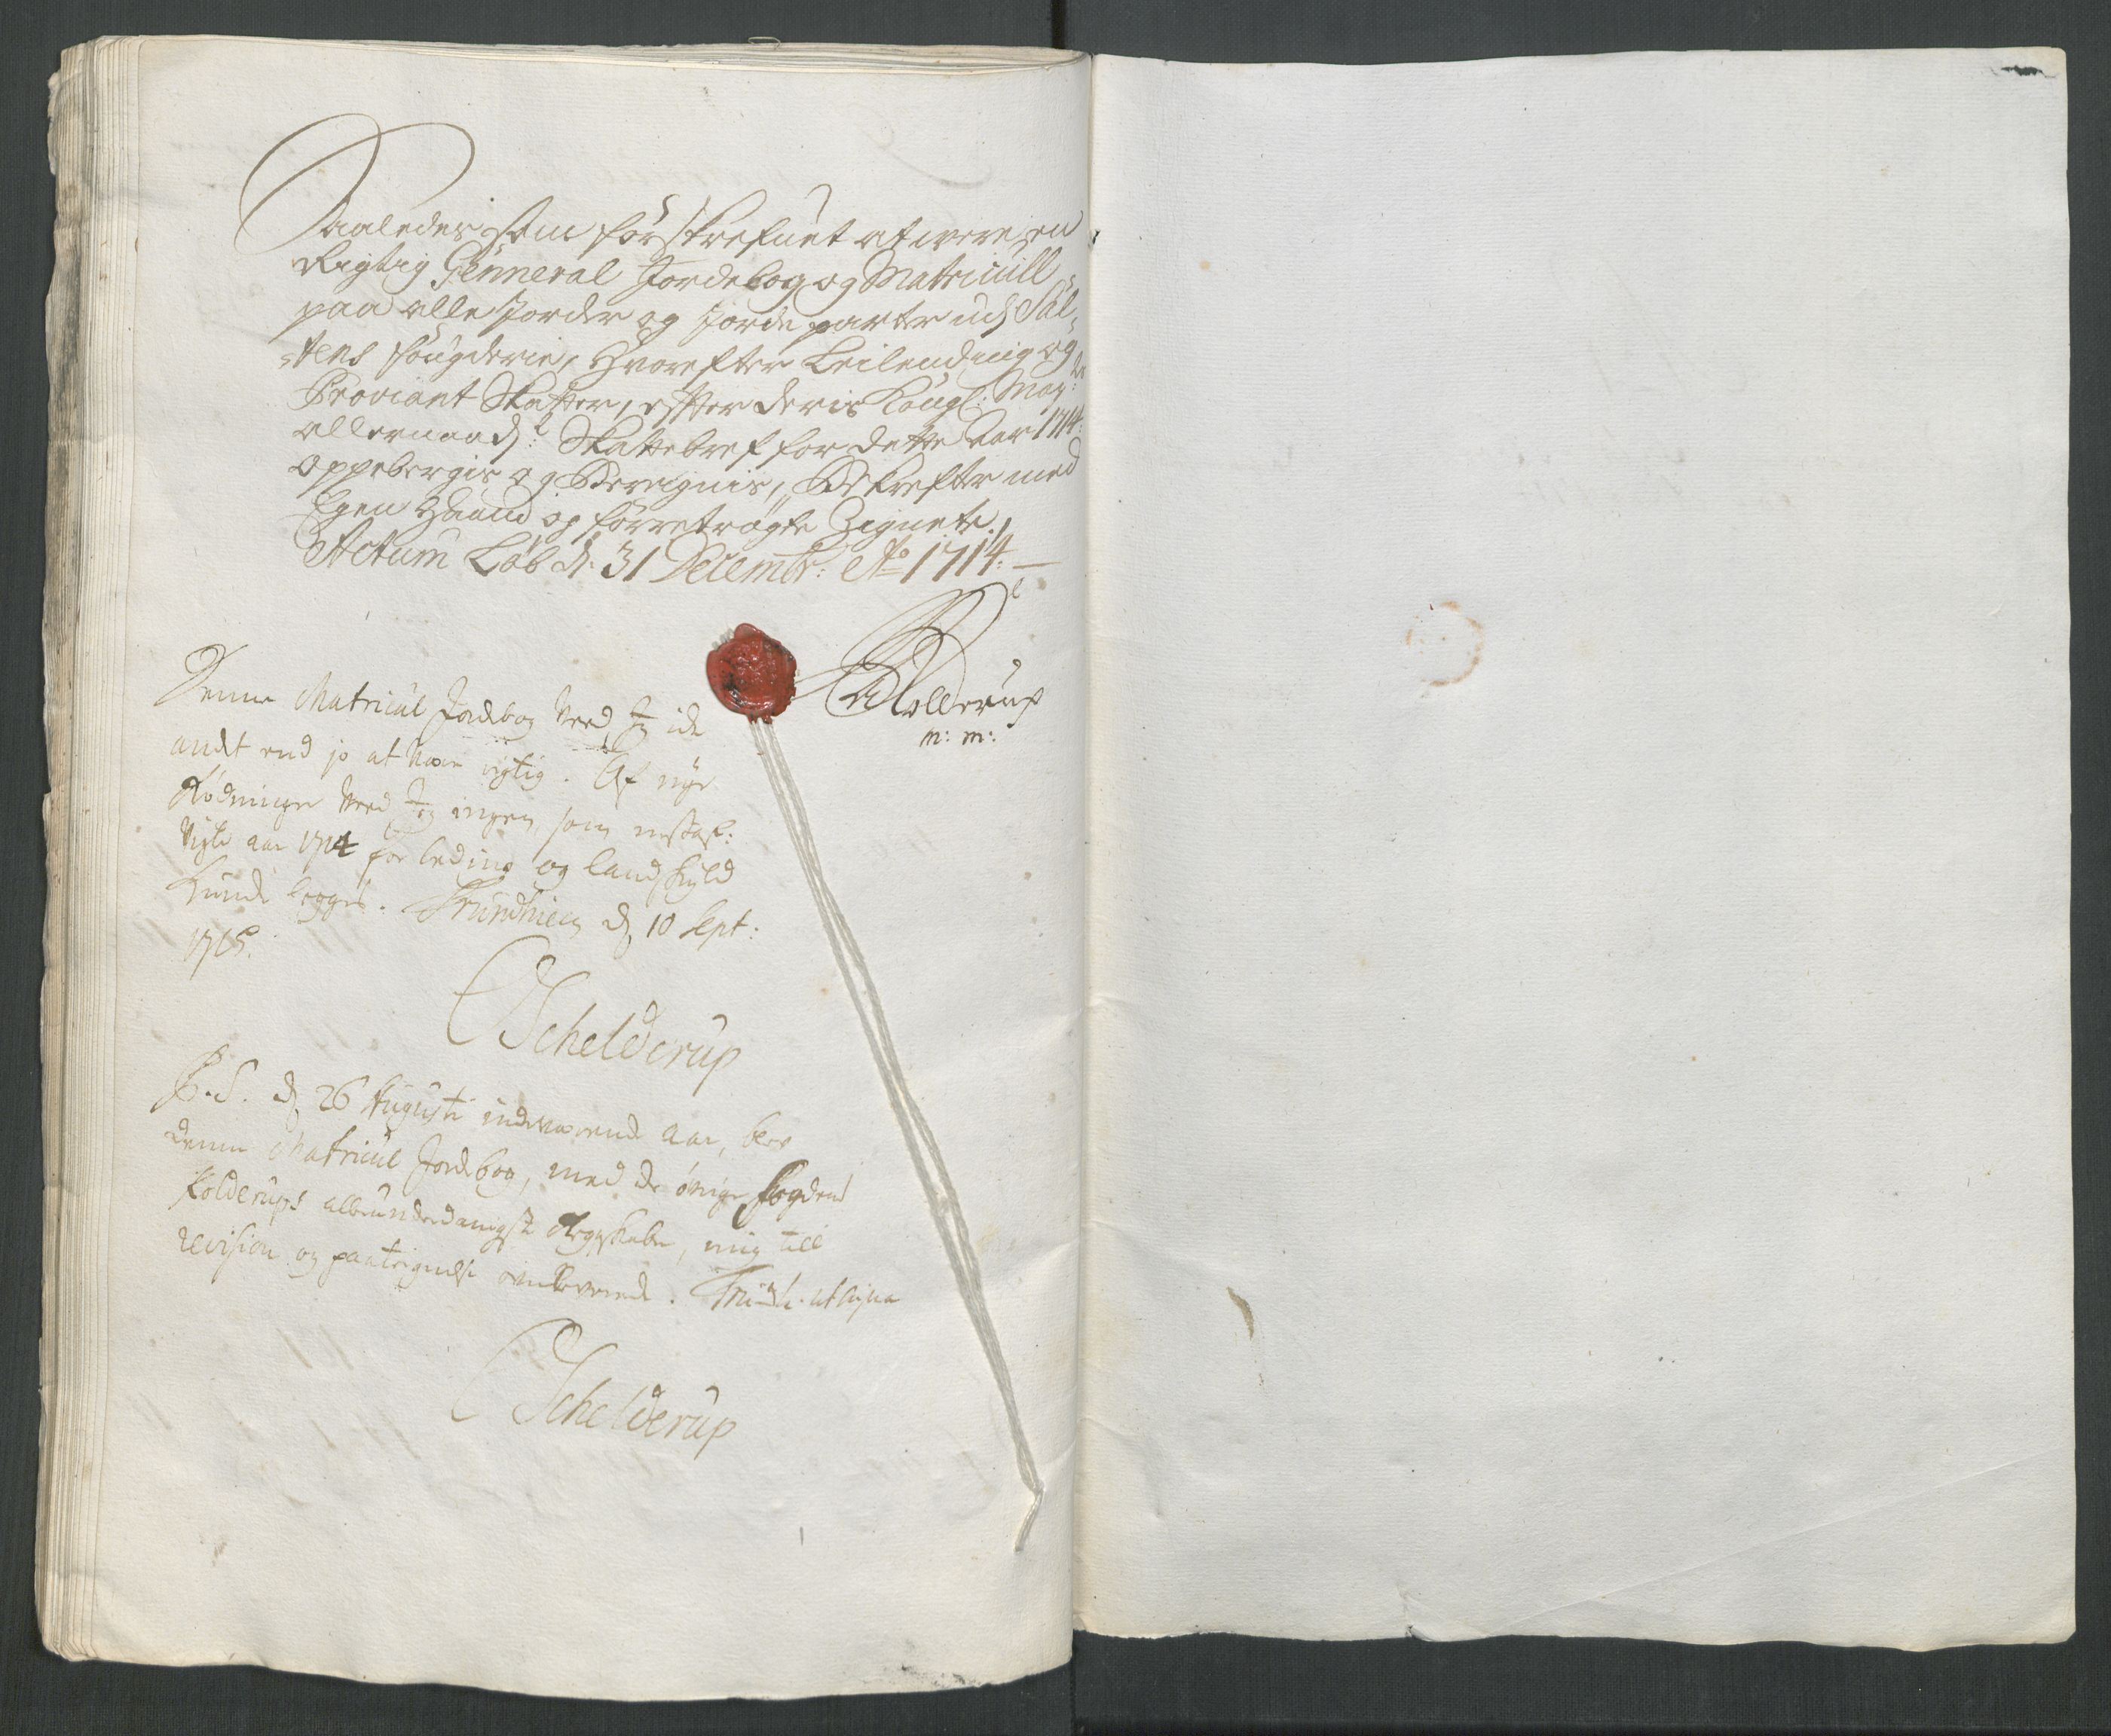 Saaledes som forskrefuet at were en
Rigtig Genneral Jordebog og Matricull
paa alle Jorder og Jorde parter udj Sal-
-tens fougderie, Hvorefter Leilending og
Proviant Skatter, effter deris Kongl: May:
allernaad: Skattebref for dette Aar 1714:
oppebergis og Beregnis, Bekrefter med
Egen Haand og forretrøgte Zignete.
Actum Løb d: 31 Decembr: Ao 1714:
Kolderup
m: m:
Denne Matricul Jordbog veed Jeg icke
andt end jo at være rigtig. Af nye
Rødninger veed Jeg ingen, som
aar 1714 for leding og landskyld
kunde leggis. Trundhiem d, 10 Sept:
1715.
Schelderup
P.S. d, 26 Augusti indeværende aar, blev
denne Matricul Jordbog, med de øvrige fogden
Kolderups allerunderdanigste Regnskaber, mig till
revision og paateignelse. Trundh. ut supra
Schelderup